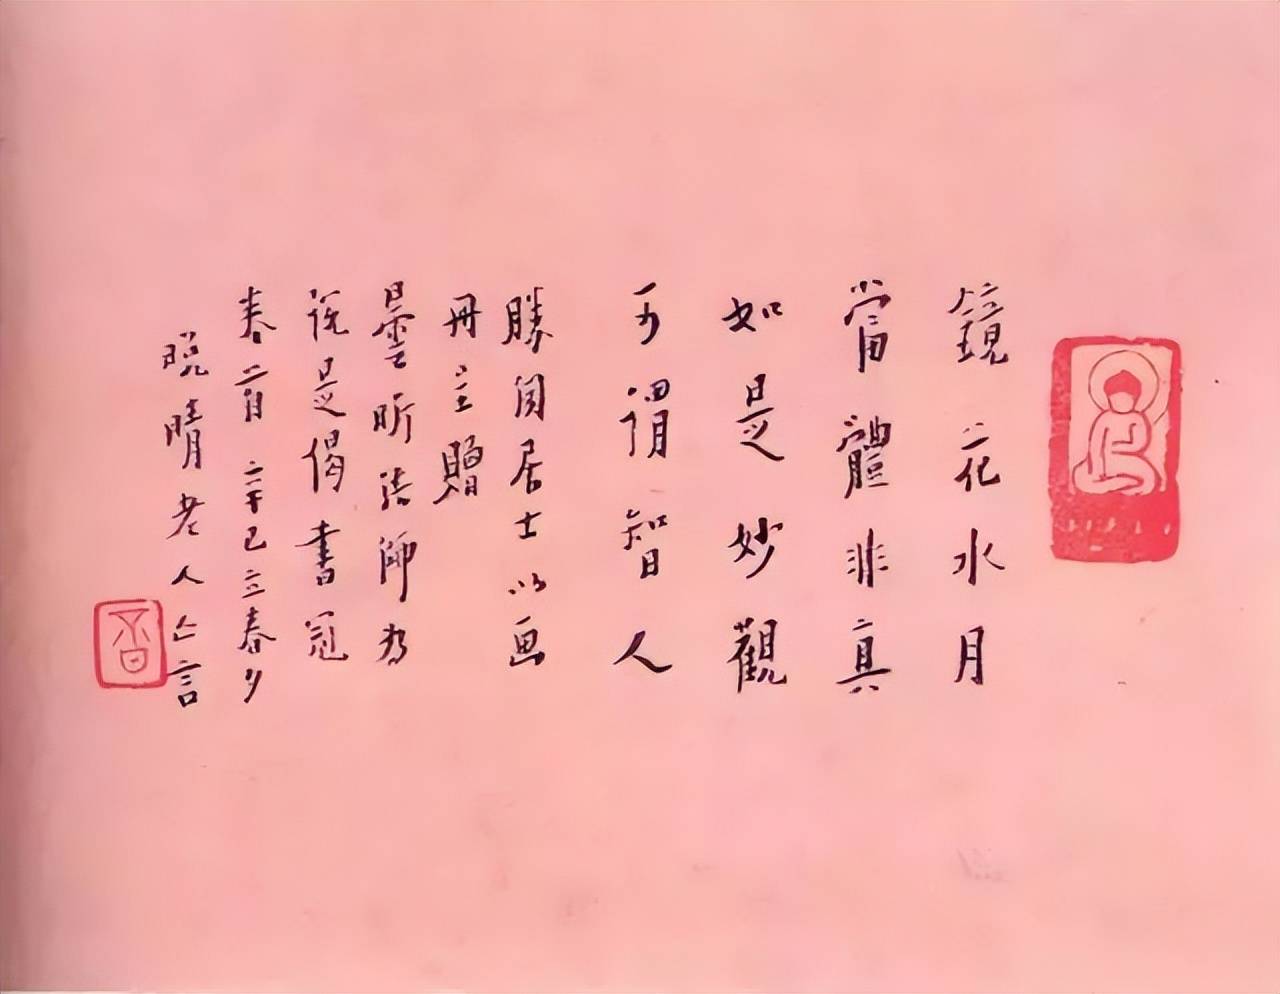 鏡花水月
當體非真
如是妙觀
可謂智人
勝聞居士以画
冊主贈
曇昕法師為
說是偈書冠
卷首 辛巳立春夕
晚晴老人亡言